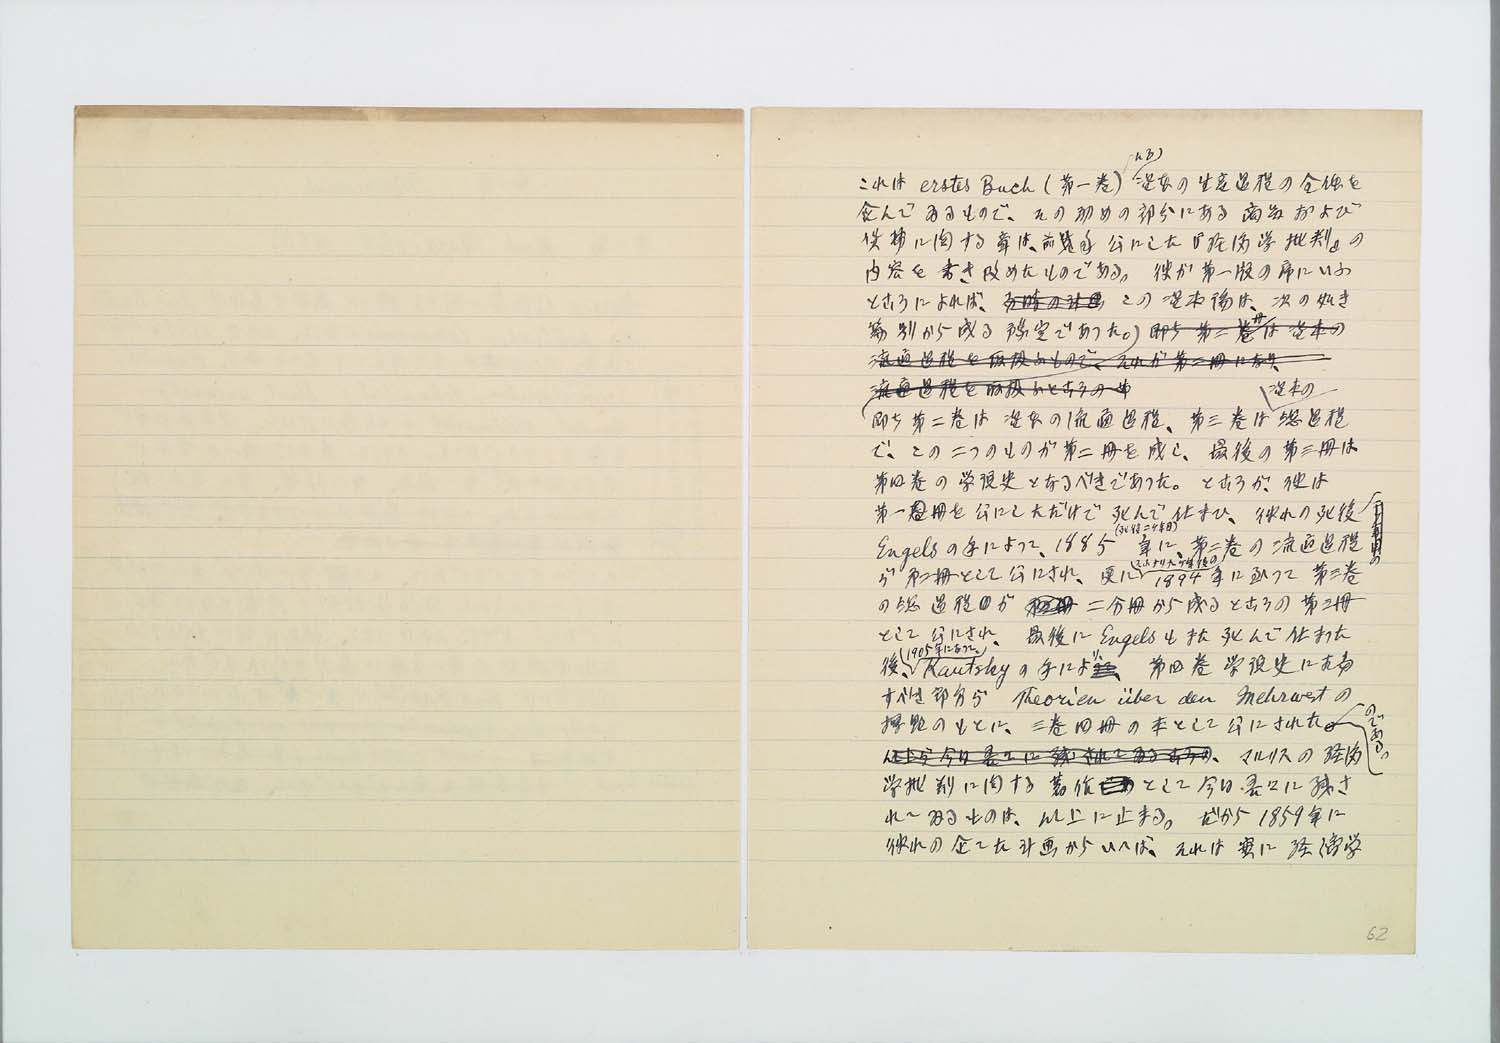 これは erstes Buch (第一巻) 資本の生産過程の全体を
含んでゐるもので、その初めの部分にある商品および
貨幣に関する章は、前 公にした『経済学批判』の
内容を書き改めたものである。彼が第一版の序にいふ
ところによれば、当時の計画 この資本論は、次の如き
篇別から成る予定であつた。即ち第二巻は資本の
流通過程を取扱ふもので、それが第二冊になり、
流通過程を取扱ふところの
資本の
即ち第二巻は資本の流通過程、第三巻は総過程
で、この二つのものが第二冊を成し、最後の第三冊は
第四巻の学説史となるべきであつた。ところが、彼は
第一冊を公にしただけで死んで仕まひ、彼れの死後
(死後二年目)
Engelsの手によつて、1885年に、第二巻の流通過程
が第二冊として公にされ、更に1894年に至つて第三巻
の総過程が 二分冊から成るところの第三冊
として公にされ、最後にEngelsもまた死んで仕まつた
1905年になつて、
後、Kautskyの手により、第四巻学説史に充当
すべき部分が Theorien über den Mehrwert の
標題のもとに、三巻四冊の本として公にされた
のである。
以上が今日吾々に残されてゐるところの、マルクスの経済
学批判に関する著作として今日吾々に残さ
れてゐるものは、以上に止まる。だから1859年に
彼れの企てた計画からいへば、それは実に経済学
62